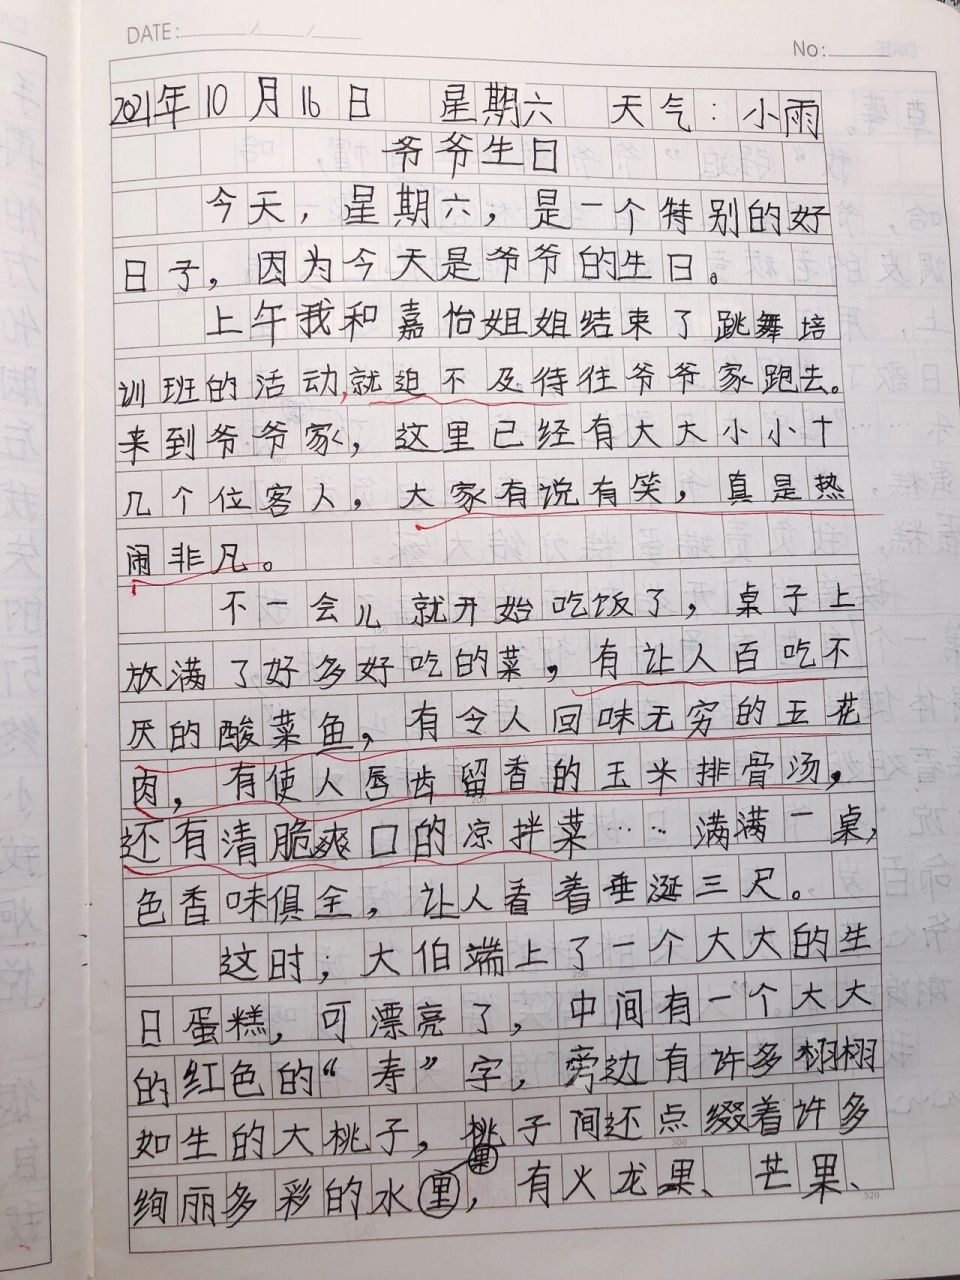 DATE:
No:
2021年10月16日 星期六 天气:小雨
爷爷生日
今天,星期六,是一个特别的好
日子,因为今天是爷爷的生日。
上午我和嘉怡姐姐结束了跳舞培
训班的活动,就迫不及待往爷爷家跑去。
来到爷爷家,这里已经有大大小小十
几个位客人,大家有说有笑,真是热
闹非凡。
不一会儿就开始吃饭了,桌子上
放满了好多好吃的菜,有让人百吃不
厌的酸菜鱼,有令人回味无穷的五花
肉,有使人唇齿留香的玉米排骨汤,
还有清脆爽口的凉拌菜……满满一桌,
色香味俱全,让人看着垂涎三尺。
这时,大伯端上了一个大大的生
日蛋糕,可漂亮了,中间有一个大大
的红色的“寿”字,旁边有许多栩栩
如生的大桃子,桃子间还点缀着许多
绚丽多彩的水果,有火龙果、芒果、